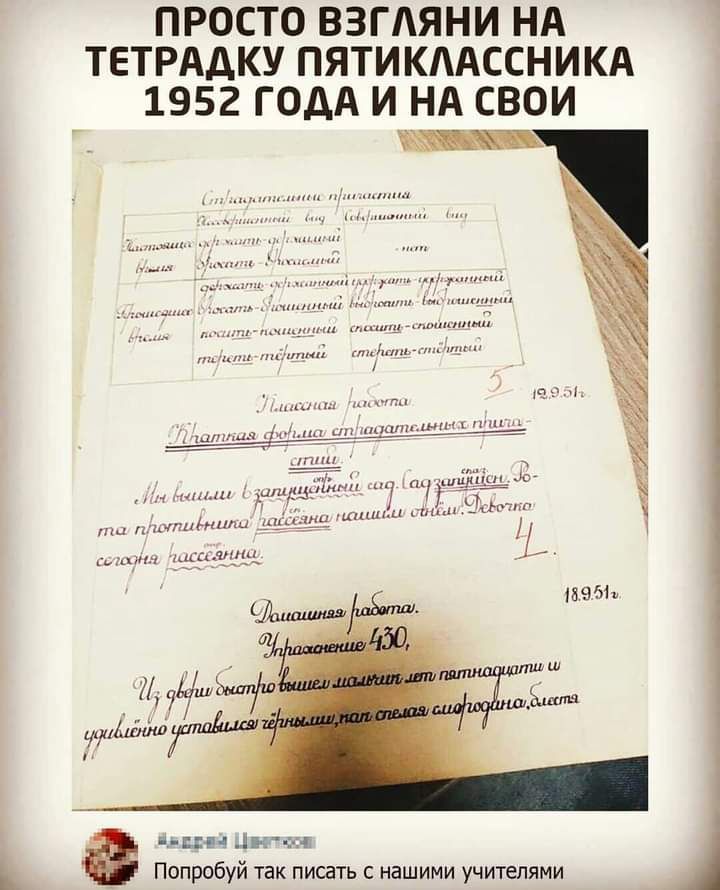 ПРОСТО ВЗГЛЯНИ НА
ТЕТРАДКУ ПЯТИКЛАССНИКА
1952 ГОДА И НА СВОИ
Страдательные причастия
Несовершенный вид Совершенный вид
Настоящее время
держать - держимый
бросать - бросаемый
- нет
Прошедшее время
держать - держанный удержать - удержанный
бросать - брошенный выбросить - выброшенный
косить - кошенный скосить - скошенный
тереть - тёртый стереть - стёртый
5
12.9.51г.
Классная работа.
Краткая форма страдательных прича-
стий.
опр. сказ.
Мы вышли в запущенный сад. Сад запущен. Ро-
та противника рассеяна нашим огнём. Девочка
сегодня рассеянна.
4
18.9.51г.
Домашняя работа.
Упражнение 430,
Из двери быстро вышел мальчик лет пятнадцати и
удивлённо уставился чёрными, как спелая смородина, блестя
Попробуй так писать с нашими учителями